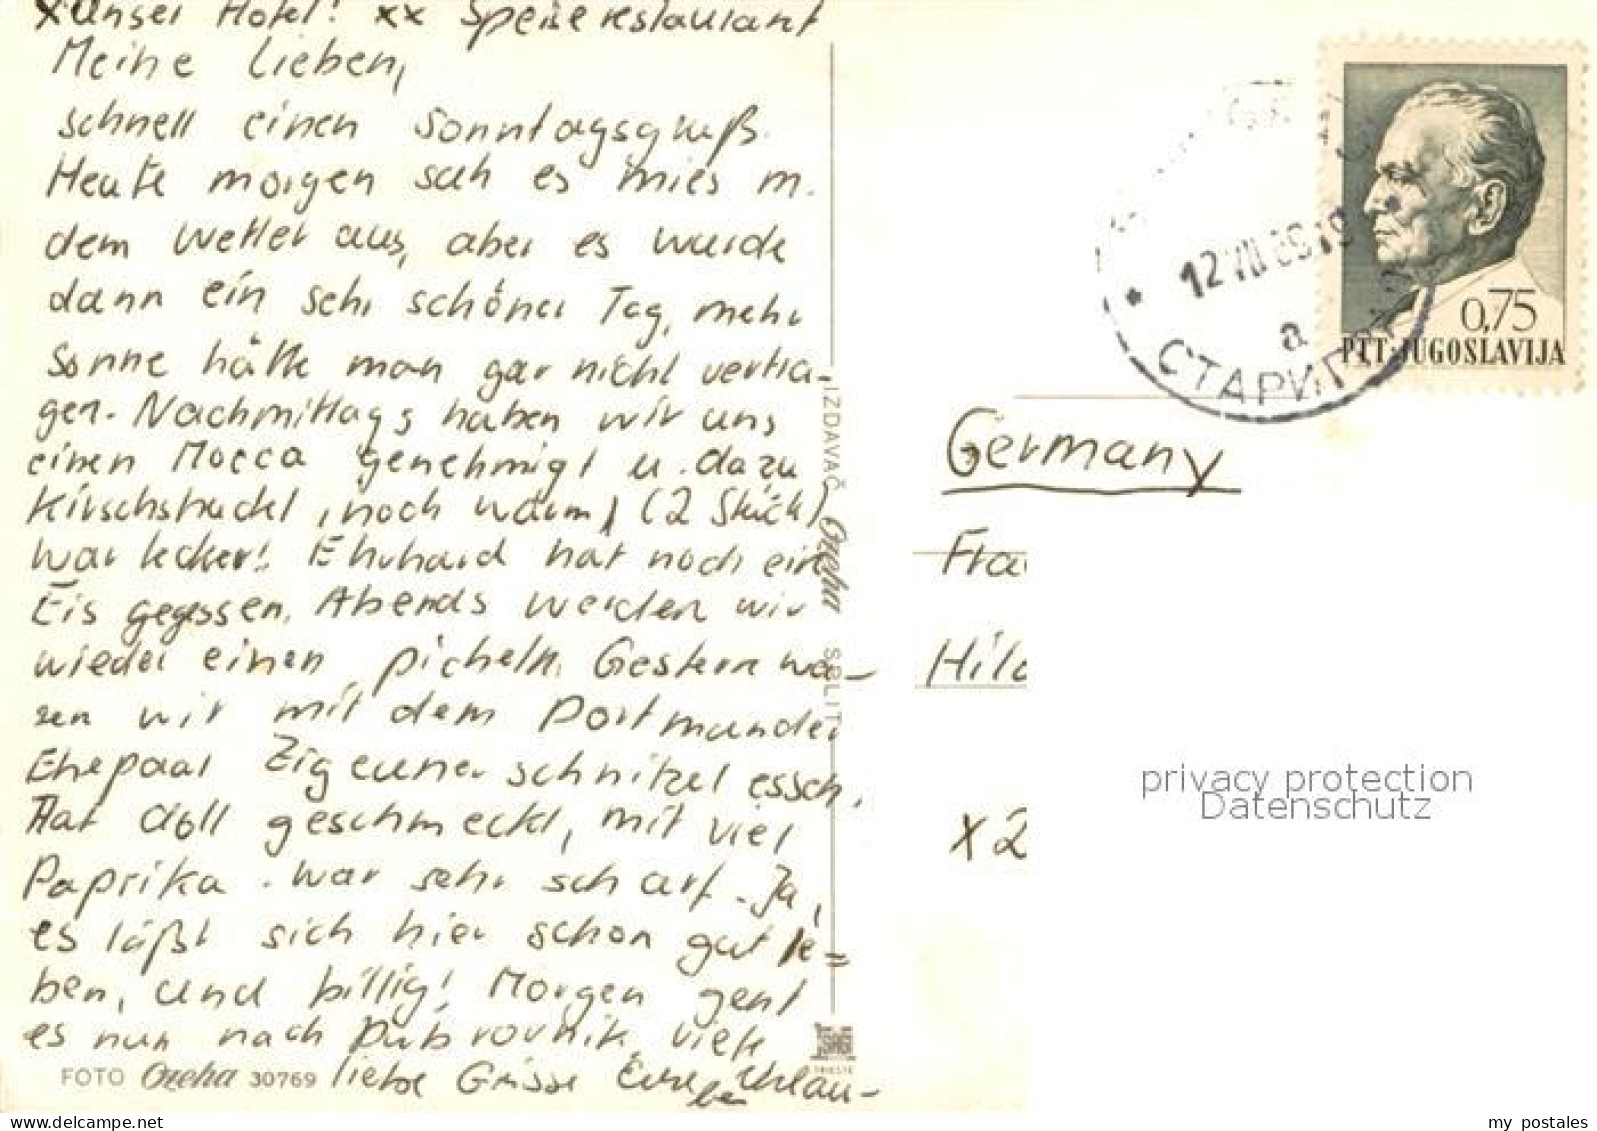 x Unser Hotel! xx Speiserestaurant
Meine Lieben,
schnell einen Sonntagsgruß.
Heute morgen sah es mies m.
dem Wetter aus, aber es wurde
dann ein sehr schöner Tag, mehr
Sonne hätte man gar nicht vertra-
gen. Nachmittags haben wir uns
einen Mocca genehmigt u. dazu
Kirschstrudel, noch warm, (2 Stück)
war lecker! Ehrhard hat noch ein
Eis gegessen. Abends werden wir
wieder einen picheln. Gestern wa-
ren wir mit dem Dortmunder
Ehepaar Zigeunerschnitzel essen.
Hat doll geschmeckt, mit viel
Paprika. War sehr scharf. Ja,
es läßt sich hier schon gut le=
ben, und billig! Morgen geht
es nun nach Dubrovnik. Viele
liebe Grüsse Eure Urlau-
ber
FOTO Ozeha 30769
IZDAVAČ Ozeha SPLIT
TRIESTE
12 VII 69 19
а
СТАРИГРАД
0,75
PTT·JUGOSLAVIJA
Germany
Frau
Hild
x2
privacy protection
Datenschutz
www.delcampe.net
my_postales